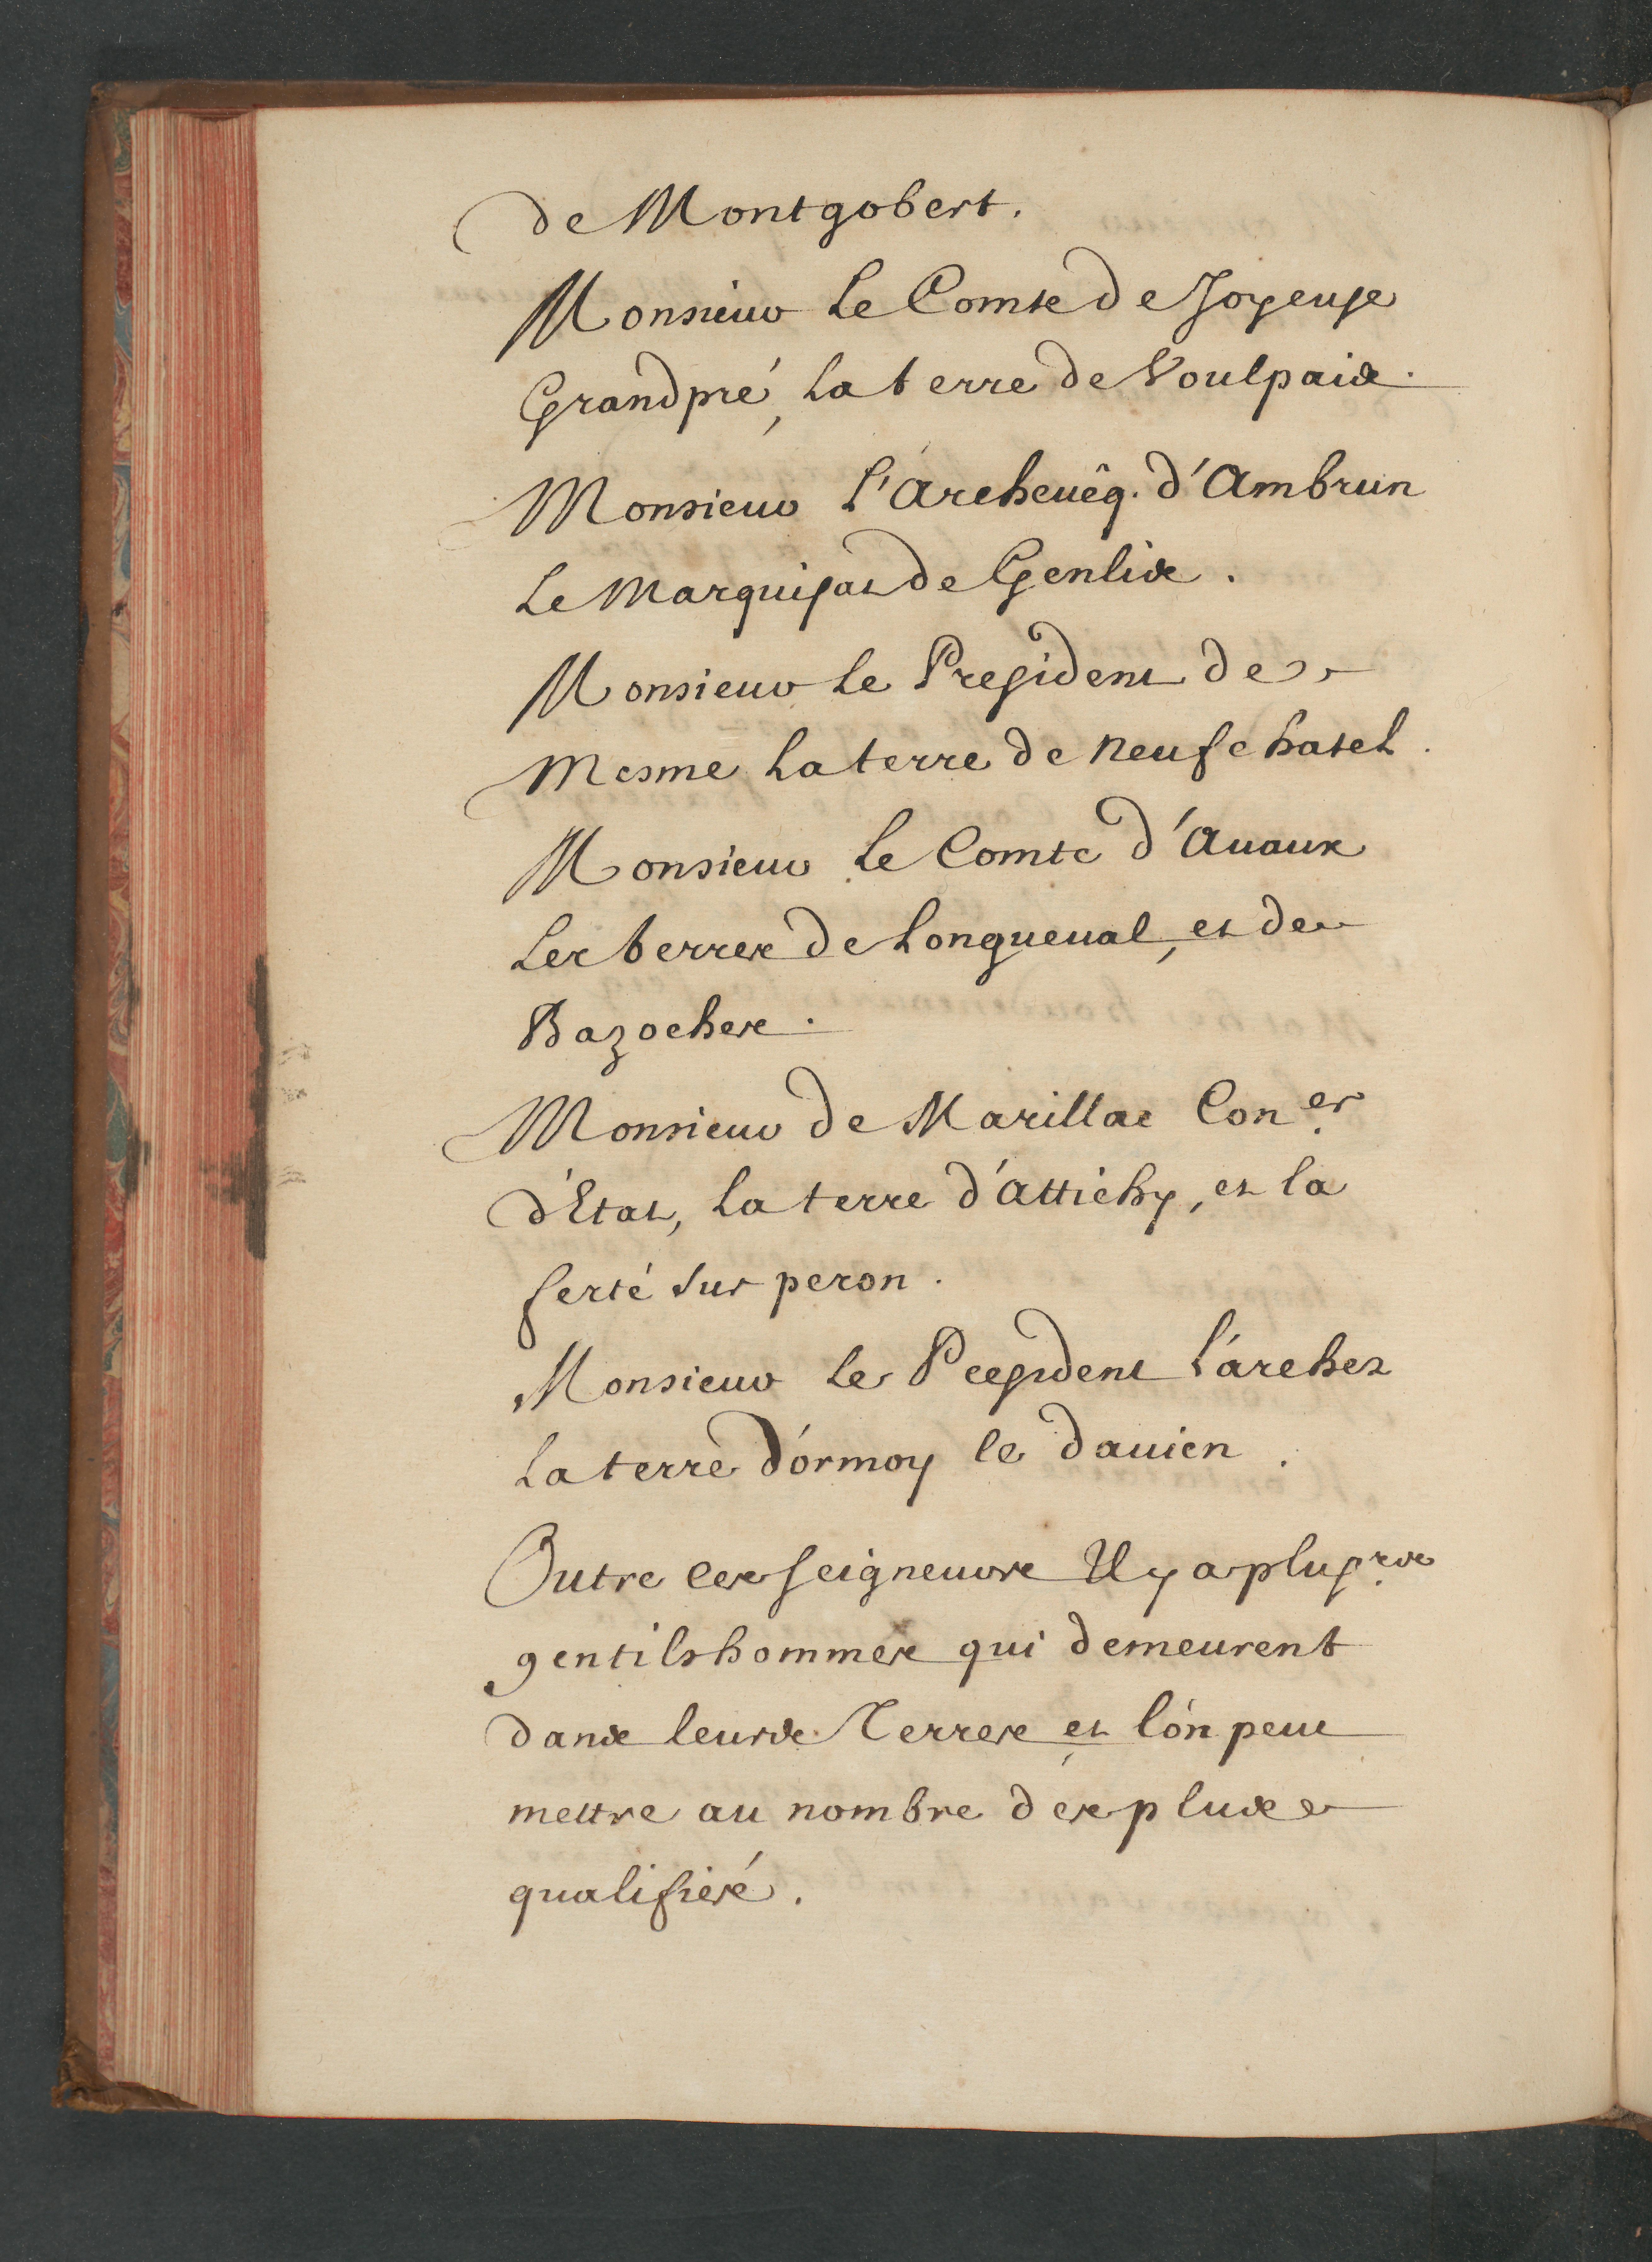 de Montgobert.
Monsieur Le Comte de Joyeuse
Grandpré, La terre de Voulpaix.
Monsieur L'Archeuêq. d'Ambrun
Le Marquisat de Genlis.
Monsieur Le President de
Mesme La terre de neufchatel.
Monsieur Le Comte d'Auaux
Les terres de Longueual, et de
Bazoches.
Monsieur de Marillac Con.er
d'Etat, La terre d'attichy, et la
ferté sur peron.
Monsieur Le President L'archer
La terre d'ormoy le dauien.
Outre ces seigneurs Il y a plus.rs
gentilshommes qui demeurent
dans leurs Terres et l'on peut
mettre au nombre des plus
qualifiés.